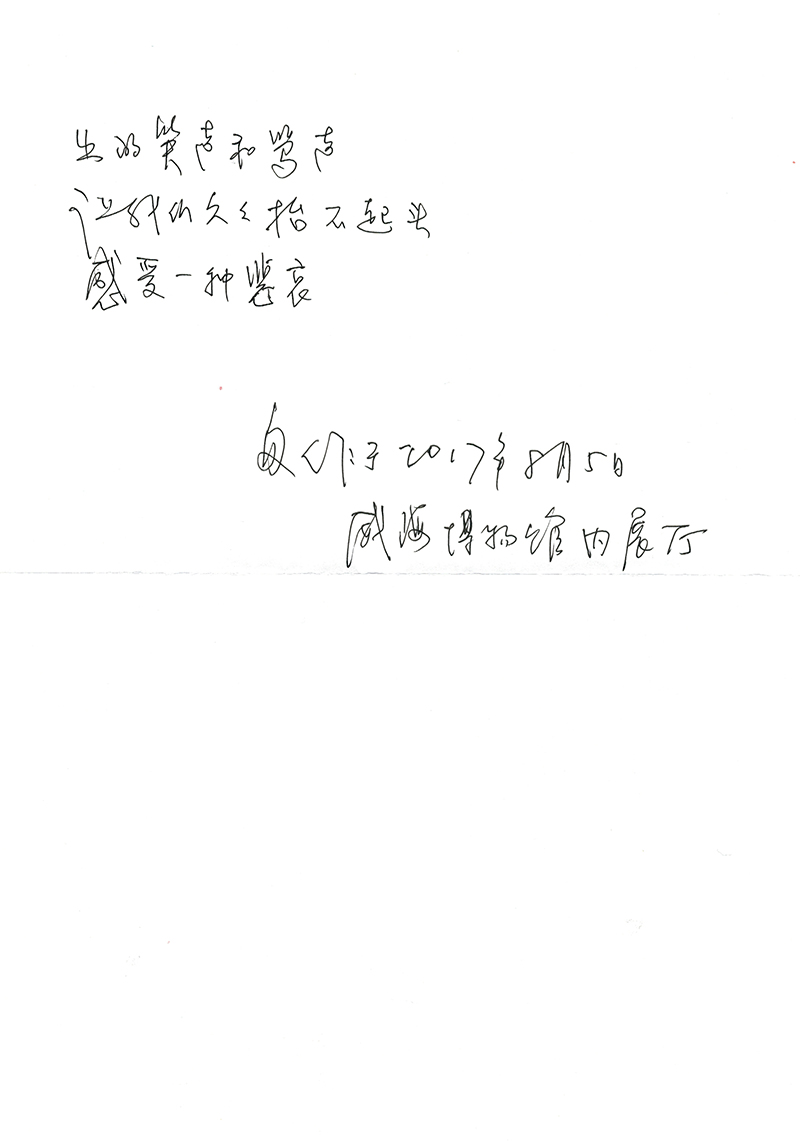 的笑声和骂声
让我们久久抬不起头
感受一种悲哀
作于2017年8月5日
威海博物馆内展厅